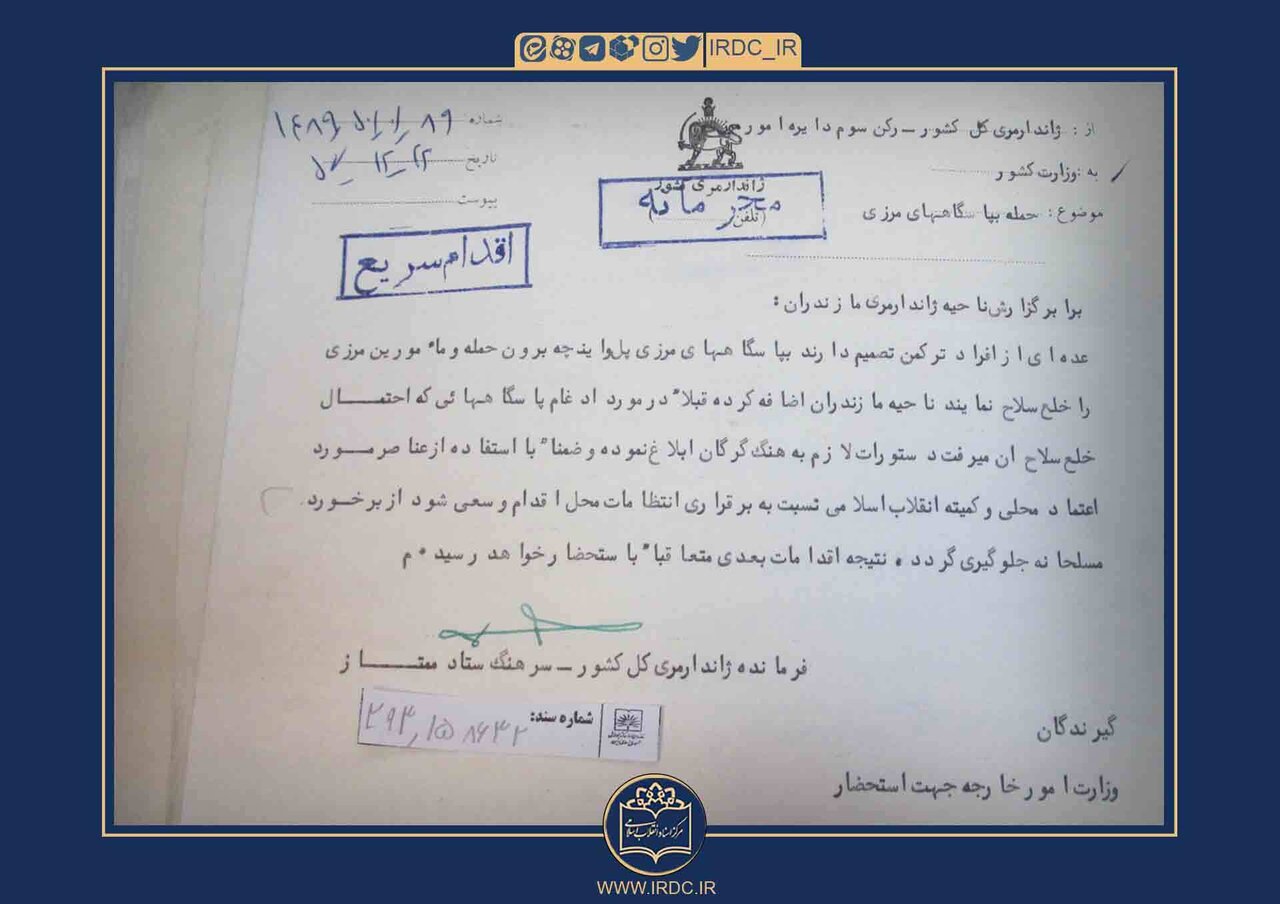 IRDC_IR
از : ژاندارمری کل کشور ــ رکن سوم دایره امور مرزی
به : وزارت کشور
موضوع : حمله بپاسگاههای مرزی
ژاندارمری کشور
(تلفن)
محرمانه
شماره
تاریخ ۵۷-۱۲-۲۲
پیوست
اقدام سریع
برابر گزارش ناحیه ژاندارمری مازندران :
عده ای از افراد ترکمن تصمیم دارند بپاسگاههای مرزی پل و اینچه برون حمله و مأمورین مرزی
را خلع سلاح نمایند ناحیه مازندران اضافه کرده قبلاً در مورد ادغام پاسگاههائی که احتمــــال
خلع سلاح ان میرفت دستورات لازم به هنگ گرگان ابلاغ نموده و ضمناً با استفاده از عناصر مــورد
اعتماد محلی و کمیته انقلاب اسلامی نسبت به برقراری انتظامات محل اقدام و سعی شود از برخــورد
مسلحانه جلوگیری گردد . نتیجه اقدامات بعدی متعاقباً باستحضار خواهد رسید . م
فرمانده ژاندارمری کل کشور ــ سرهنگ ستاد ممتــــاز
شماره سند:
گیرندگان
وزارت امور خارجه جهت استحضار
مرکز اسناد انقلاب اسلامی
WWW.IRDC.IR